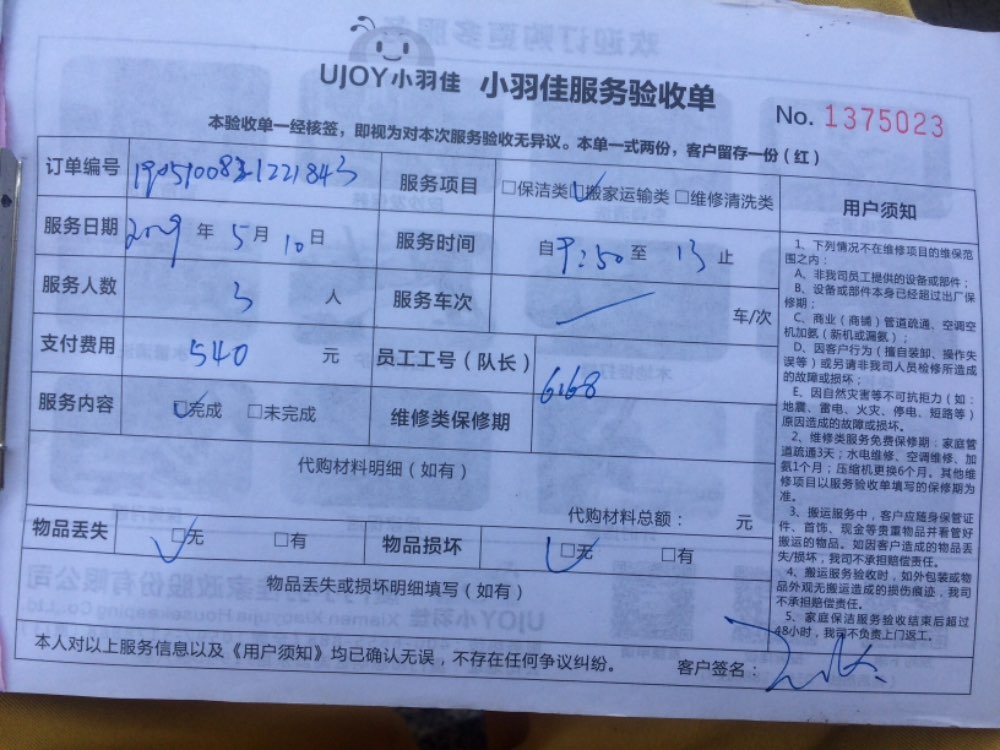 UJOY小羽佳 小羽佳服务验收单
No. 1375023
本验收单一经核签，即视为对本次服务验收无异议。本单一式两份，客户留存一份（红）
订单编号 服务项目 □保洁类 □搬家运输类 □维修清洗类
服务日期 2019 年 5 月 10 日 服务时间 自 9:50 至 13 止
服务人数 3 人 服务车次 车/次
支付费用 540 元 员工工号（队长） 6168
服务内容 □完成 □未完成 维修类保修期
代购材料明细（如有）
代购材料总额： 元
物品丢失 □无 □有 物品损坏 □无 □有
物品丢失或损坏明细填写（如有）
本人对以上服务信息以及《用户须知》均已确认无误，不存在任何争议纠纷。 客户签名：
用户须知
1、下列情况不在维修项目的维保范
围之内：
A、非我司员工提供的设备或部件；
B、设备或部件本身已经超过出厂保
修期；
C、商业（商铺）管道疏通、空调空
机加氨（新机或漏氨）；
D、因客户行为（擅自装卸、操作失
误等）或另请非我司人员检修所造成
的故障或损坏；
E、因自然灾害等不可抗拒力（如：
地震、雷电、火灾、停电、短路等）
原因造成的故障或损坏。
2、维修类服务免费保修期：家庭管
道疏通3天；水电维修、空调维修、加
氨1个月；压缩机更换6个月。其他维
修项目以服务验收单填写的保修期为
准。
3、搬运服务中，客户应随身保管证
件、首饰、现金等贵重物品并看管好
搬运的物品。如因客户造成的物品丢
失/损坏，我司不承担赔偿责任。
4、搬运服务验收时，如外包装或物
品外观无搬运造成的损伤痕迹，我司
不承担赔偿责任。
5、家庭保洁服务验收结束后超过
48小时，我司不负责上门返工。